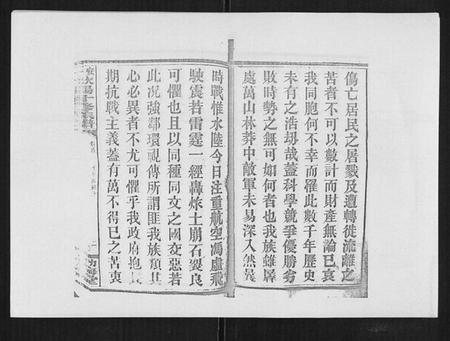 傷亡居民之居毀及遭轉徙流離之
苦者不可以數計而財產無論已哀
我同胞何不幸而罹此數千年歷史
未有之浩刼哉蓋科學競爭優勝劣
敗時勢之無可如何者也我族雖孱
處萬山林莽中敵軍未易深入然異
時戰惟水陸今日注重航空馮虛飛
駛震若雷霆一經轟炸土崩石裂良
可懼也且以同種同文之國交惡若
此况強鄰環視傳所謂匪我族類其
心必異者不尤可懼乎我政府抱長
期抗戰主義蓋有萬不得已之苦衷